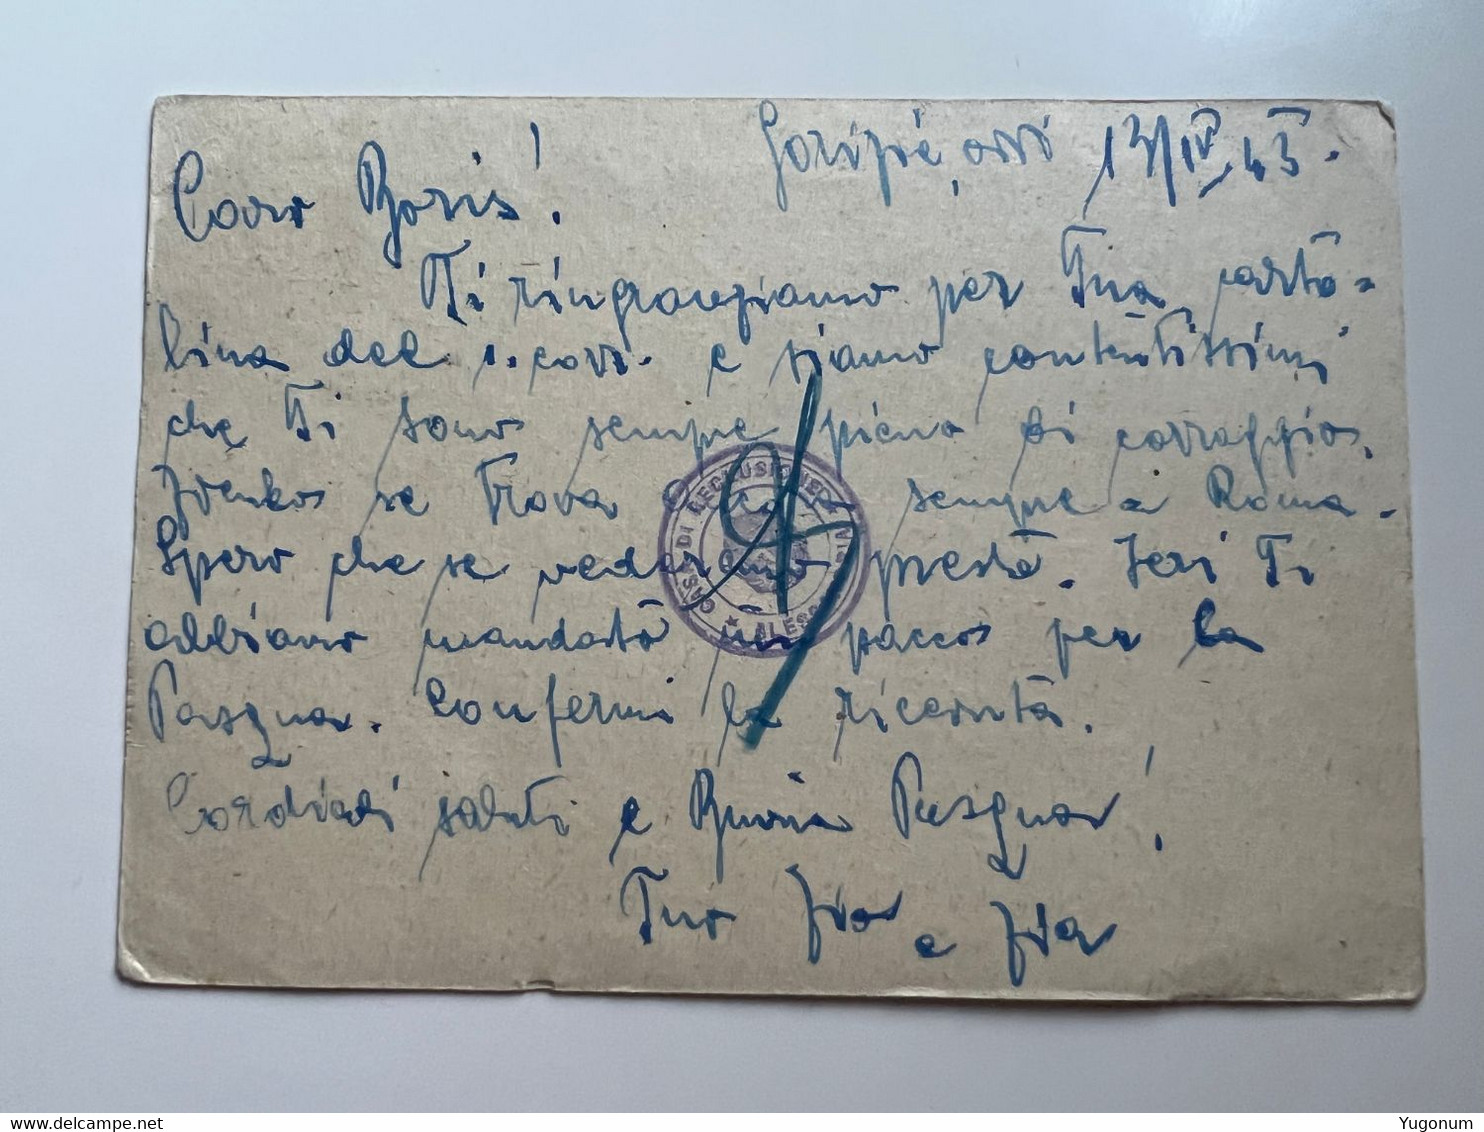 Gorizia, 13/IV 43.
Caro Boris!
Ti ringraziamo per Tua carto-
lina del 1. corr. e siamo contentissimi
che Ti sono sempre pieno di corraggio.
Zdenko se trova sempre a Roma.
Spero che se vederemo presto. Ieri Ti
abbiamo mandato un pacco per la
Pasqua. Confermi la ricevuta.
Cordiali saluti e Buona Pasqua!
Tuo Zio e Zia
CASA DI RECLUSIONE
ALESS
Yugonum